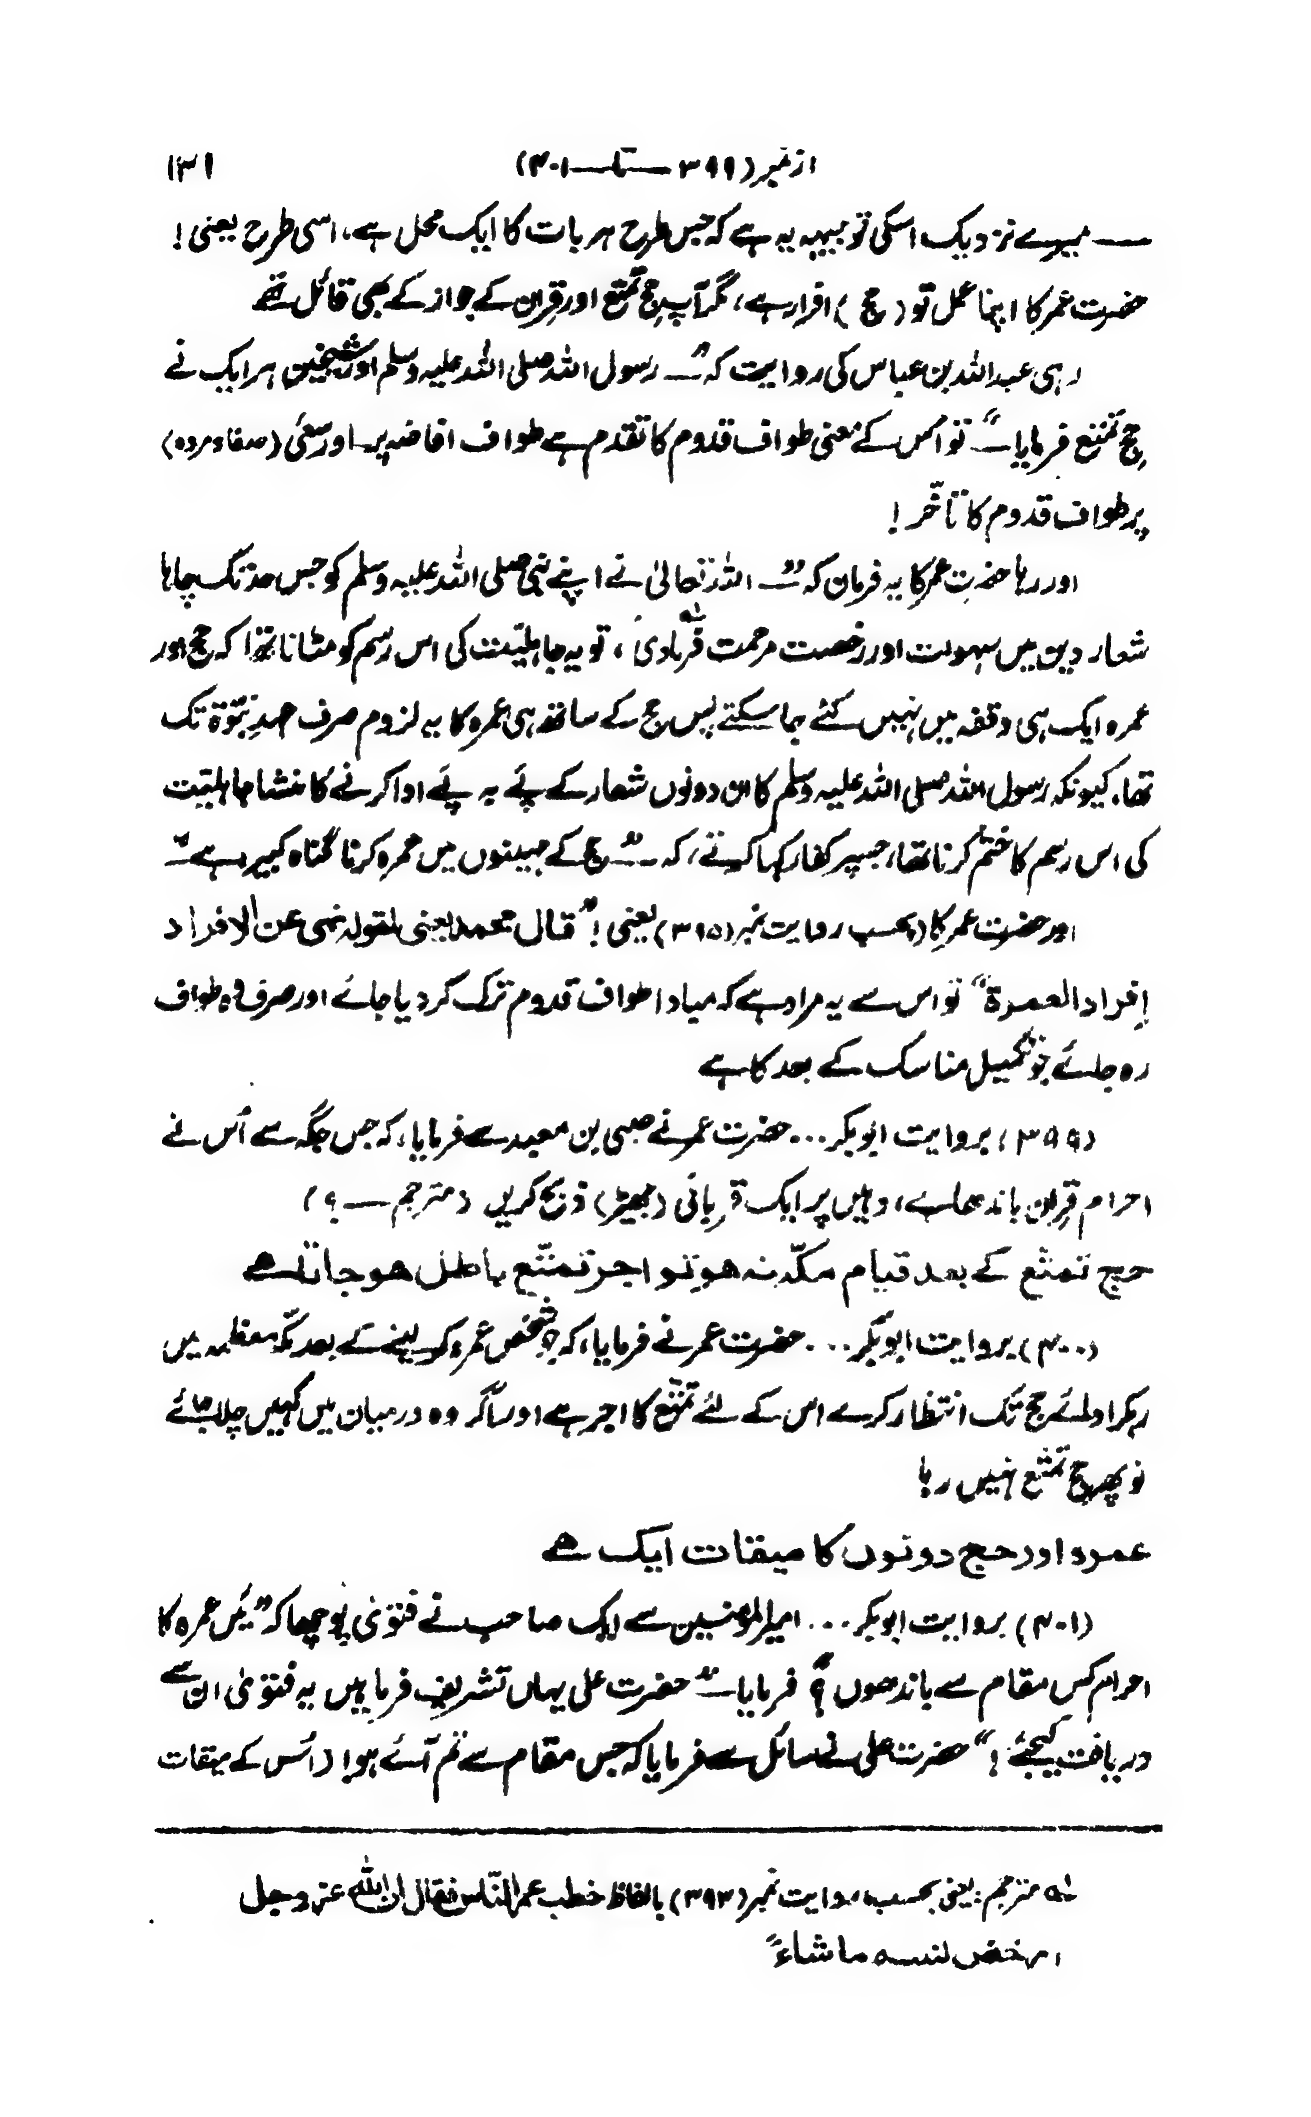 از نمبر (۳۹۹ — تا — ۴۰۱) ۱۳۱
— میرے نزدیک اسکی توجیہہ یہ ہے کہ جس طرح ہر بات کا ایک محل ہے، اسی طرح یعنی!
حضرت عمر کا اپنا عمل تو (حج) افراد ہے، مگر آپ حج تمتّع اور قِران کے جواز کے بھی قائل تھے
رہی عبداللہ بن عباس کی روایت کہ "— رسول اللہ صلی اللہ علیہ وسلم اور شیخین ہر ایک نے
حجِ تمتع فرمایا—" تو اس کے معنی طواف قدوم کا تقدم ہے طواف افاضہ پر اور سعی (صفا و مروہ)
پر طواف قدوم کا تأخّر!
اور رہا حضرت عمر کا یہ فرمان کہ "— اللہ تعالیٰ نے اپنے نبی صلی اللہ علیہ وسلم کو جس حد تک چاہا
شعار دین میں سہولت اور رخصت مرحمت فرما دی" لہ، تو یہ جاہلیّت کی اس رسم کو مٹانا تھا کہ حج اور
عمرہ ایک ہی وقفہ میں نہیں کئے جا سکتے پس حج کے ساتھ ہی عمرہ کا یہ لزوم صرف عہدِ نبوّۃ تک
تھا، کیونکہ رسول اللہ صلی اللہ علیہ وسلم کا ان دونوں شعار کے پئے بہ پئے ادا کرنے کا منشا جاہلیّت
کی اس رسم کا ختم کرنا تھا، جسپر کفار کہا کرتے، کہ "— حج کے مہینوں میں عمرہ کرنا گناہ کبیرہ ہے—"
اور حضرت عمر کا (بحسب روایت نمبر (۳۹۵) یعنی! "قال محمد یعنی بقولہ نھی عن الافراد
إفراد العمرۃ" تو اس سے یہ مراد ہے کہ مبادا طواف قدوم ترک کر دیا جائے اور صرف وہ طواف
رہ جائے جو تکمیل مناسک کے بعد کا ہے
(۳۹۹) بروایت ابوبکر... حضرت عمر نے صبی بن معبد سے فرمایا، کہ جس جگہ سے اُس نے
احرام قِران باندھا ہے، وہیں پر ایک قربانی (بھیڑ) ذبح کریں (مترجم — ؟)
حج تمتّع کے بعد قیام مکّہ نہ ہو تو اجر تمتّع باطل ہو جاتا ہے
(۴۰۰) بروایت ابوبکر... حضرت عمر نے فرمایا، کہ جو شخص عمرہ کر لینے کے بعد مکّہ معظمہ میں
رہ کر ادائے حج تک انتظار کرے اس کے لئے تمتّع کا اجر ہے اور اگر وہ درمیان میں کہیں چلا جائے
تو پھر حج تمتّع نہیں رہا
عمرہ اور حج دونوں کا میقات ایک ہے
(۴۰۱) بروایت ابوبکر... امیرالمومنین سے ایک صاحب نے فتوٰی پوچھا کہ "میں عمرہ کا
احرام کس مقام سے باندھوں؟" فرمایا—" حضرت علی یہاں تشریف فرما ہیں یہ فتوٰی ان سے
دریافت کیجئے!" حضرت علی نے سائل سے فرمایا کہ جس مقام سے تم آئے ہو! (اُس کے میقات
لہ مترجم: یعنی بحسب روایت نمبر (۳۹۳) بالفاظ خطب عمر الناس فقال ان اللہ عز وجل
ارخص لنبیہ ما شاء"